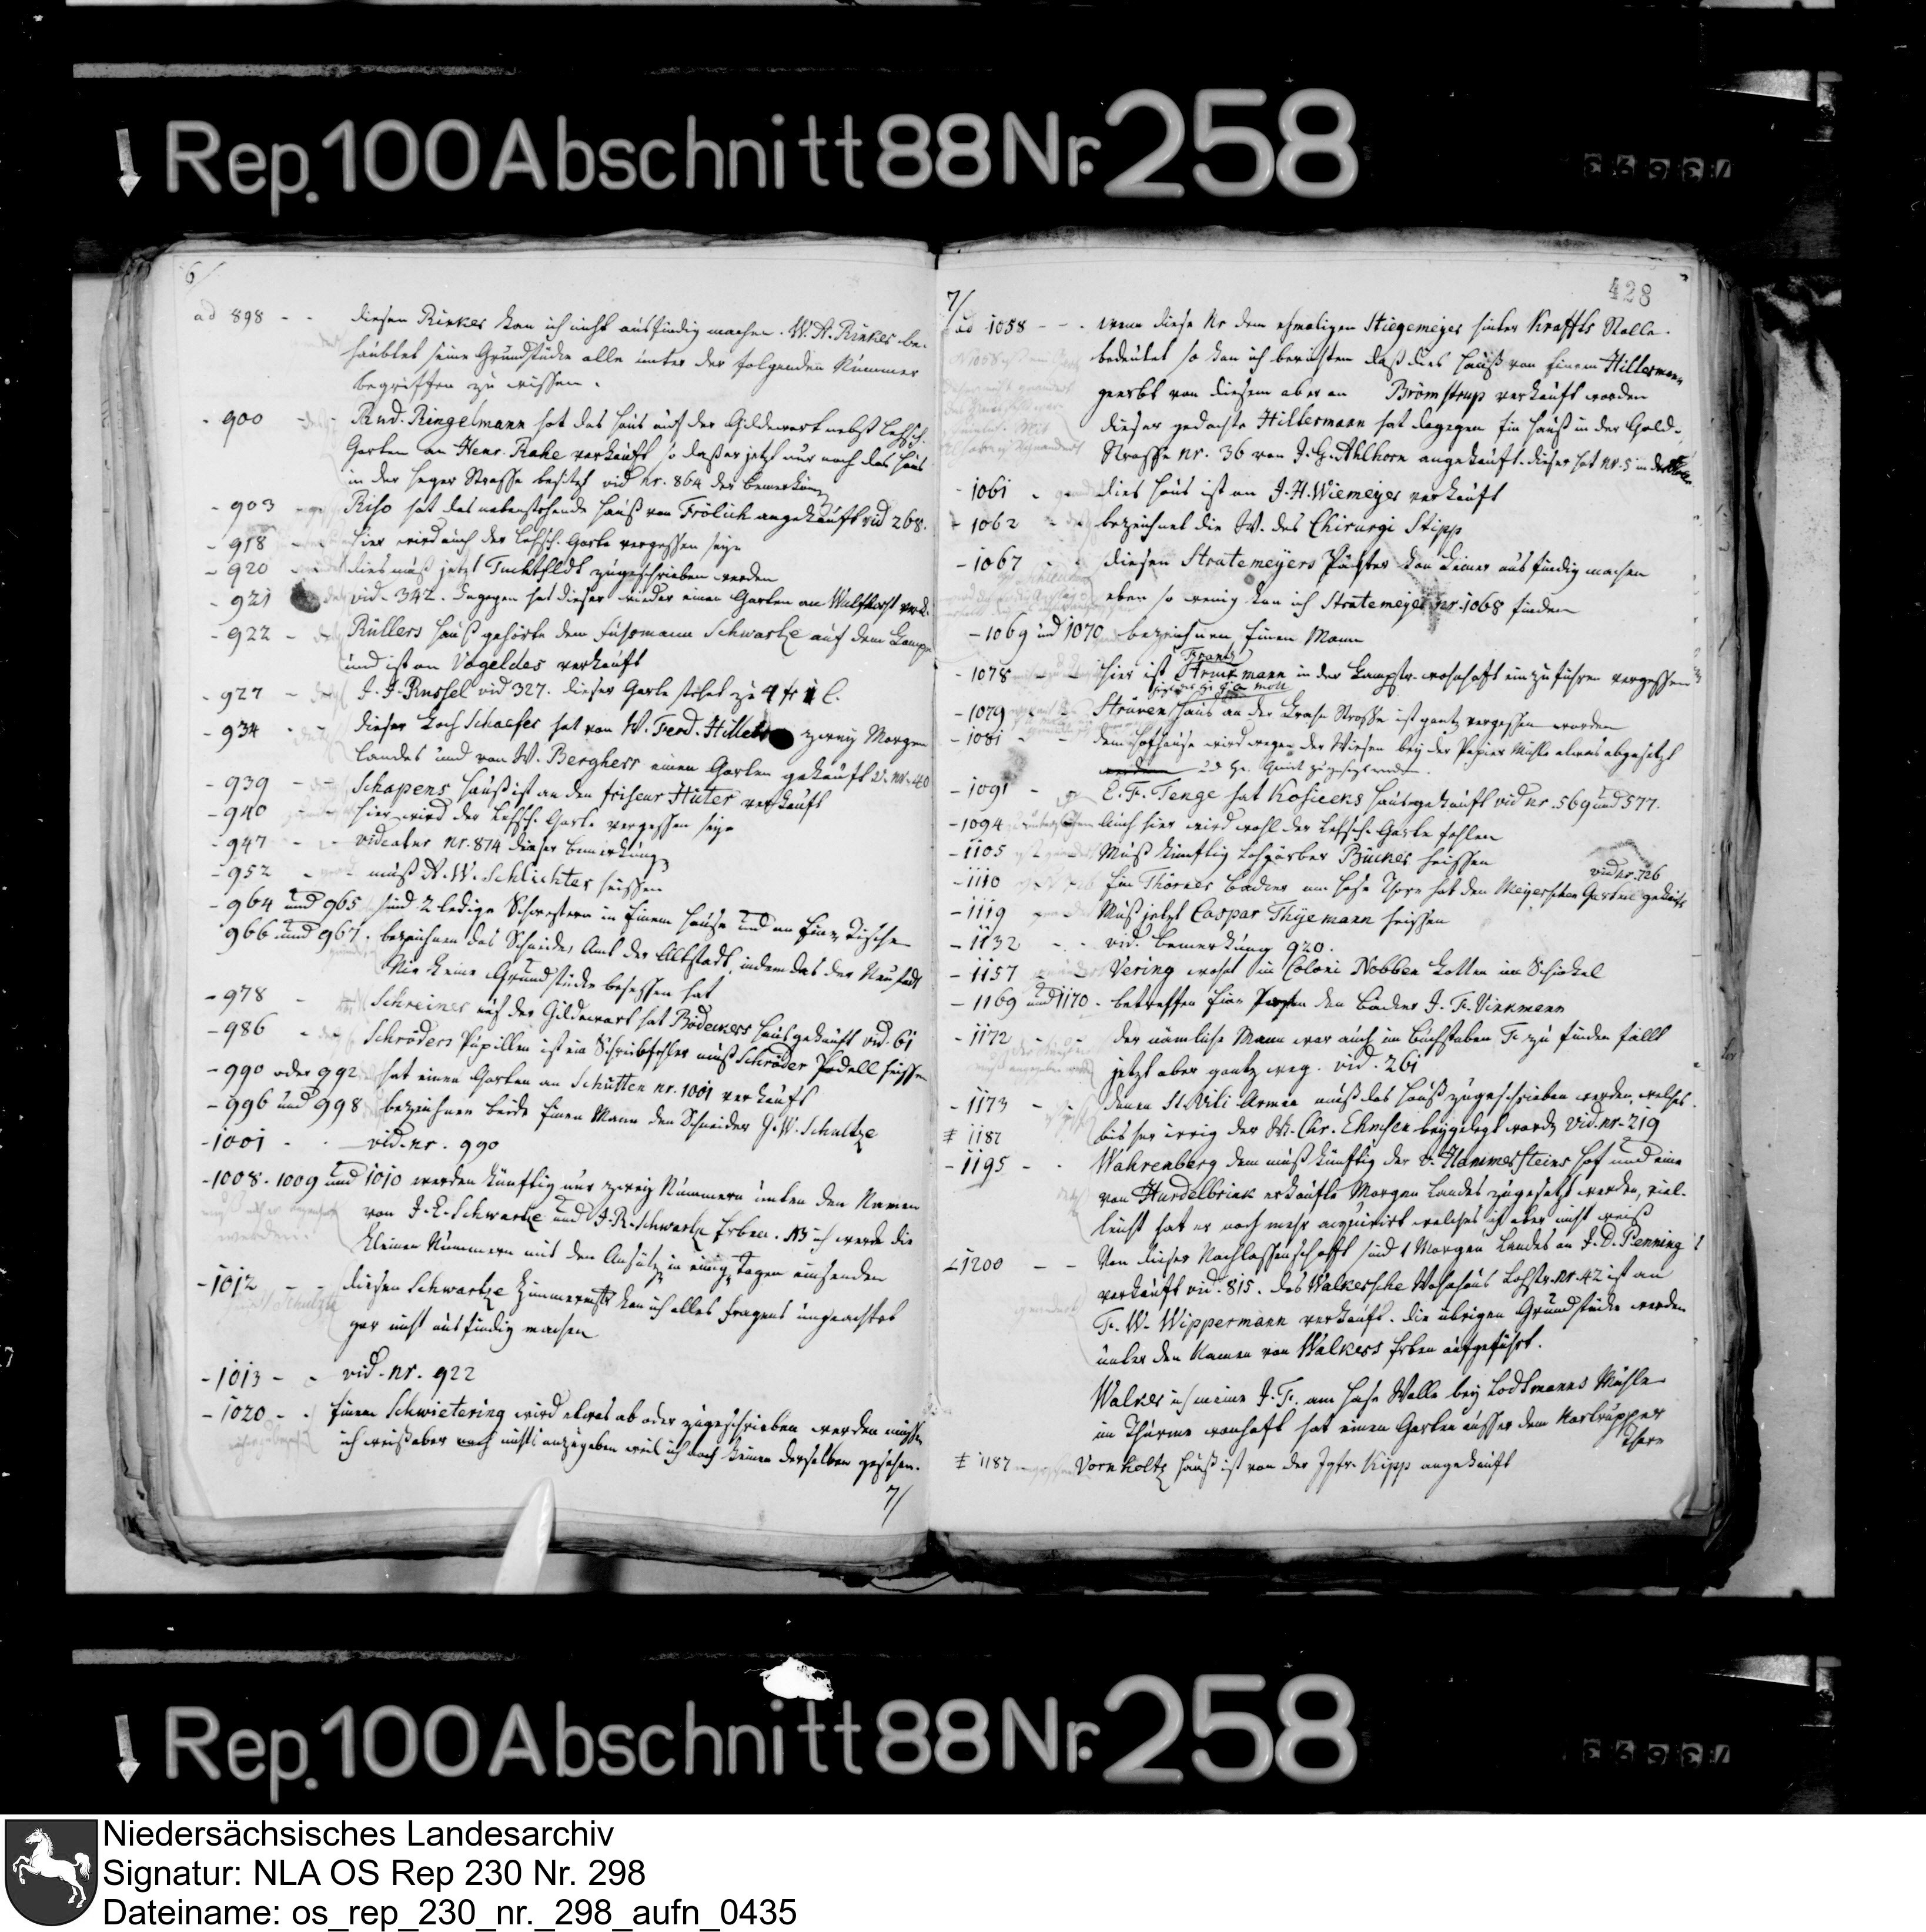 Rep. 100 Abschnitt 88 Nr. 258
6/
ad 898 - - diesen Rinker kan ich nicht ausfindig machen. W. A. Rinker be-
haubtet seine Grundstücke alle unter der folgenden Nummer
begriffen zu wissen.
- 900 - Rud. Ringelmann hat das Haus auf der Gildewart nebst Lehsch.
Garten an Henr. Rahe verkauft so daß er jetzt nur noch das Haus
in der Heger Strasse besitzt vid nr. 864 der Bemerkung
- 903 - Riso hat das nebenstehende Hauß von Frölich angekauft vid 268.
- 918 - hier wird auch der Lehsch. Garte vergessen seyn
- 920 - dies muß jetzt Tuchtfeldt zugeschrieben werden
- 921 vid. 342. dagegen hat dieser wieder einen Garten an Wulfhorst verk.
- 922 - Rullers Hauß gehörte dem Fuhrmann Schwartze auf dem Kampe
und ist an Vogeldes verkauft
- 927 - J. J. Russel vid 327. dieser Garte stehet zu 4
- 934 - - dieser Koch Schaefer hat von W. Ferd. zwey Morgen
Landes und von W. Bergherr einen Garten gekauft v. nr. 40
- 939 - - Schapens Hauß ist an den friseur Hüter verkauft
- 940 - hier wird der Lehsch. Garte vergessen seyn
- 947 - - videatur nr. 874 dieser Bemerkung
- 952 - muß W. Schlichter heissen
- 964 und 965 sind 2 ledige Schwestern in Einem Hause und an Einem Tische
966 und 967. bezeichnen das Schneider Amt der Altstadt, indem das der Neustadt
Nie keine Grundstücke besessen hat
- 978 - Schreiner auf der Gildewart hat Bödekers Haus gekauft vid. 61
- 986 - Schröders Pupillen ist ein Schreibfehler muß Schröder Pedell heissen
- 990 oder 992 hat einen Garten an Schütten nr. 1001 verkauft
- 996 und 998 bezeichnen beide Einen Mann den Schneider G. W. Schultze
- 1001 - - vid. nr. 990
- 1008. 1009 und 1010 werden künftig nur zwey Nummern unter den Namen
von J. E. Schwartze und J. R. Schwartze Erben. NB ich werde die
kleinen Nummern mit den Ansätzen in einig. Tagen einsenden
- 1012 - - diesen Schwartze Zimmermstr kan ich alles fragens ungeachtet
gar nicht ausfindig machen
- 1013 - - vid. nr. 922
- 1020 - - Einem Schwietering wird etwas ab oder zugeschrieben werden müssen
ich weiß aber noch nichts anzugeben weil ich noch keinen derselben gesehen.
7/
428
7/
ad 1058 - - - wenn diese Nr dem ehmaligen Stiegemeyer hinter Kraffts Stelle
bedeutet so kan ich berichten daß dies Hauß von Einem Hillermann
geerbt von diesem aber an Brömstrup verkauft worden
dieser gedachte Hillermann hat dagegen Ein Hauß in der Gold-
Strasse nr. 36 von J. G. Ahlhorn angekauft. dieser hat nr. 5 in der
- 1061 - dies Haus ist an J. H. Wiemeyer verkauft
- 1062 - bezeichnet die W. des Chirurgi Stipp
- 1067 - - diesen Stratemeyers Pächter kan keiner ausfindig machen
eben so wenig kan ich Stratemeyer nr. 1068 finden
- 1069 und 1070 bezeichnen Einen Mann
Frantz
- 1078 - - hier ist Struckmann in der Kampstr. wohnhaft einzuführen vergessen
- 1079 - Struven Haus an der Krahn Strasse ist gantz vergessen worden
- 1081 - - dem Hofhause wird wegen der Wiesen bey der Papier Mühle etwas abgesetzt
- 1091 - E. F. Tenge hat Kosieens Haus gekauft vid nr. 569 und 577.
- 1094 Auch hier wird wohl der Lehsch. Garte fehlen
- 1105 Muß künftig Lohgärber Bücker heissen
vid nr. 726
- 1110 Ein Thörner Becker am Hase Thore hat den Meyerschen Garten gekauft
- 1119 Muß jetzt Caspar Thyemann heissen
- 1132 - - vid. Bemerkung 920.
- 1157 Vering wohnt in Coloni Nobben Kotten im Schinkel
- 1169 und 1170 - betreffen Eine Person den Becker J. F. Vinkmann
- 1172 - - der nämliche Mann war auch im Buchstaben F. zu finden fällt
jetzt aber gantz weg. vid. 261
- 1173 - - denen St. Viti Armen muß das Hauß zugeschrieben werden, welches
bisher irrig der W. Chr. Ehmsen beygelegt worden vid. nr. 219
‡ 1187
- 1195 - - Wahrenberg dem muß künftig der v. Hammersteins Hof und eine
von Hurdelbrink erkaufte Morgen Landes zugesetzt werden, viel-
leicht hat er noch mehr acquirirt welches ich aber nicht weiß
- 1200 - - Von dieser Nachlassenschafft sind 1 Morgen Landes an J. D. Penning
verkauft vid. 815. das Walkersche Wohnhaus Lohstr. nr. 42 ist an
F. W. Wippermann verkauft. die übrigen Grundstücke werden
unter den Namen von Walkers Erben aufgeführt.
Walker ich meine J. F. am Hase Walle bey Lodtmanns Mühle
im Thurme wonhaft hat einen Garten ausser dem Nortrupper
Thore
‡ 1187 Vornholtz Hauß ist von der Jgfr. Kipp angekauft
Rep. 100 Abschnitt 88 Nr. 258
Niedersächsisches Landesarchiv
Signatur: NLA OS Rep 230 Nr. 298
Dateiname: os_rep_230_nr._298_aufn_0435